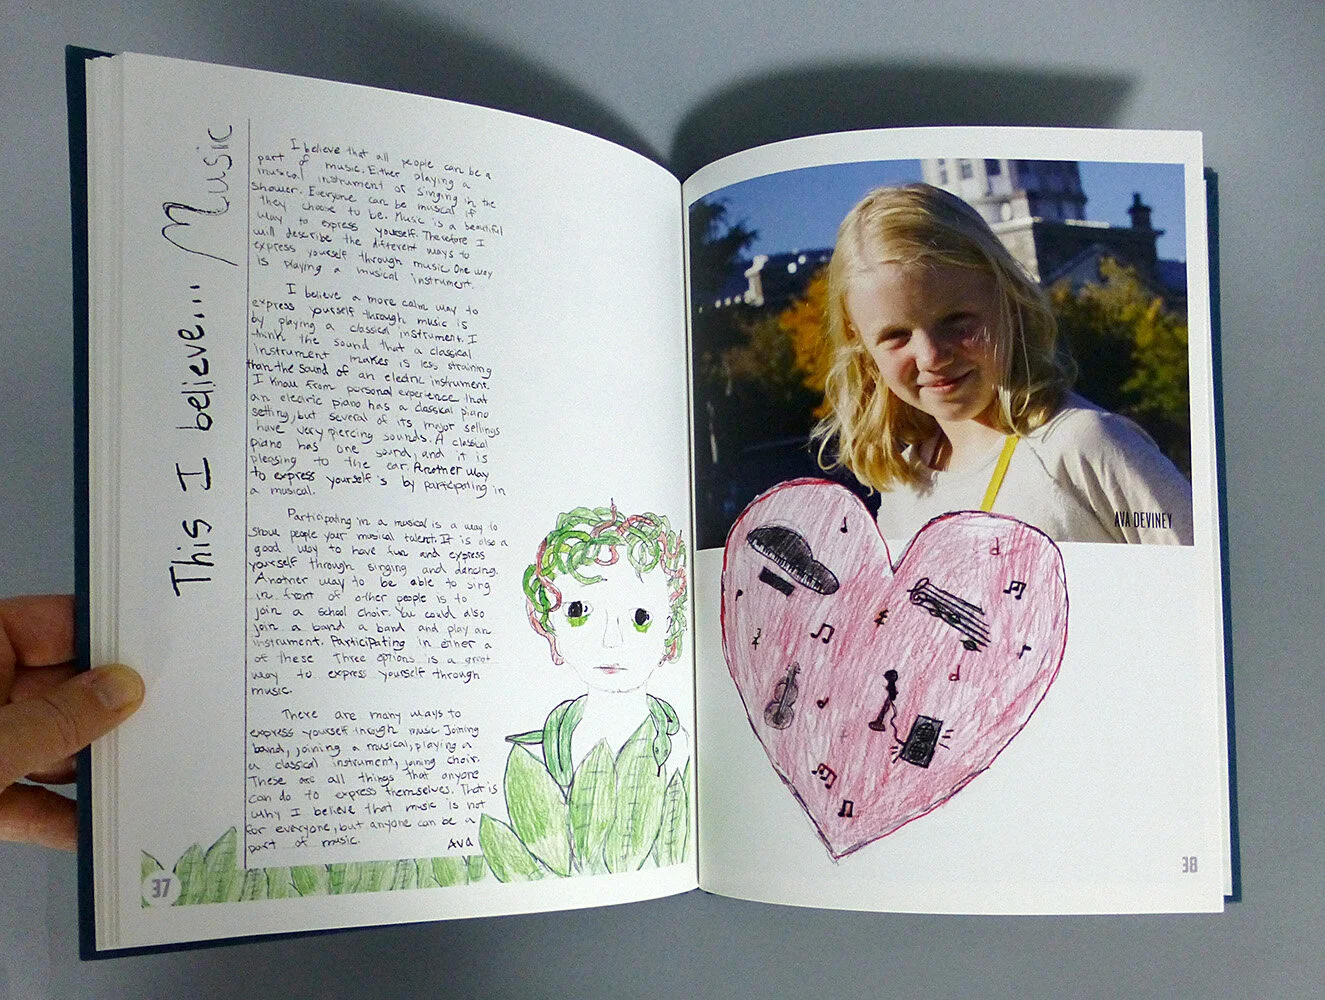 This I believe... Music
I believe that all people can be a
part of music. Either playing a
musical instrument or singing in the
shower. Everyone can be musical if
they choose to be. Music is a beautiful
way to express yourself. Therefore I
will describe the different ways to
express yourself through music. One way
is playing a musical instrument.
I believe a more calm way to
express yourself through music is
by playing a classical instrument. I
think the sound that a classical
instrument makes is less straining
than the sound of an electric instrument.
I know from personal experience that
an electric piano has a classical piano
setting, but several of its major settings
have very piercing sounds. A classical
piano has one sound, and it is
pleasing to the ear. Another way
to express yourself is by participating in
a musical.
Participating in a musical is a way to
show people your musical talent. It is also a
good way to have fun and express
yourself through singing and dancing.
Another way to be able to sing
in front of other people is to
join a school choir. You could also
join a band a band and play an
instrument. Participating in either a
of these Three options is a great
way to express yourself through
music.
There are many ways to
express yourself through music Joining
band, joining a musical, playing a
a classical instrument, joining choir.
These are all things that anyone
can do to express themselves. That is
why I believe that music is not
for everyone, but anyone can be a
part of music. Ava
37
AVA DEVINEY
38